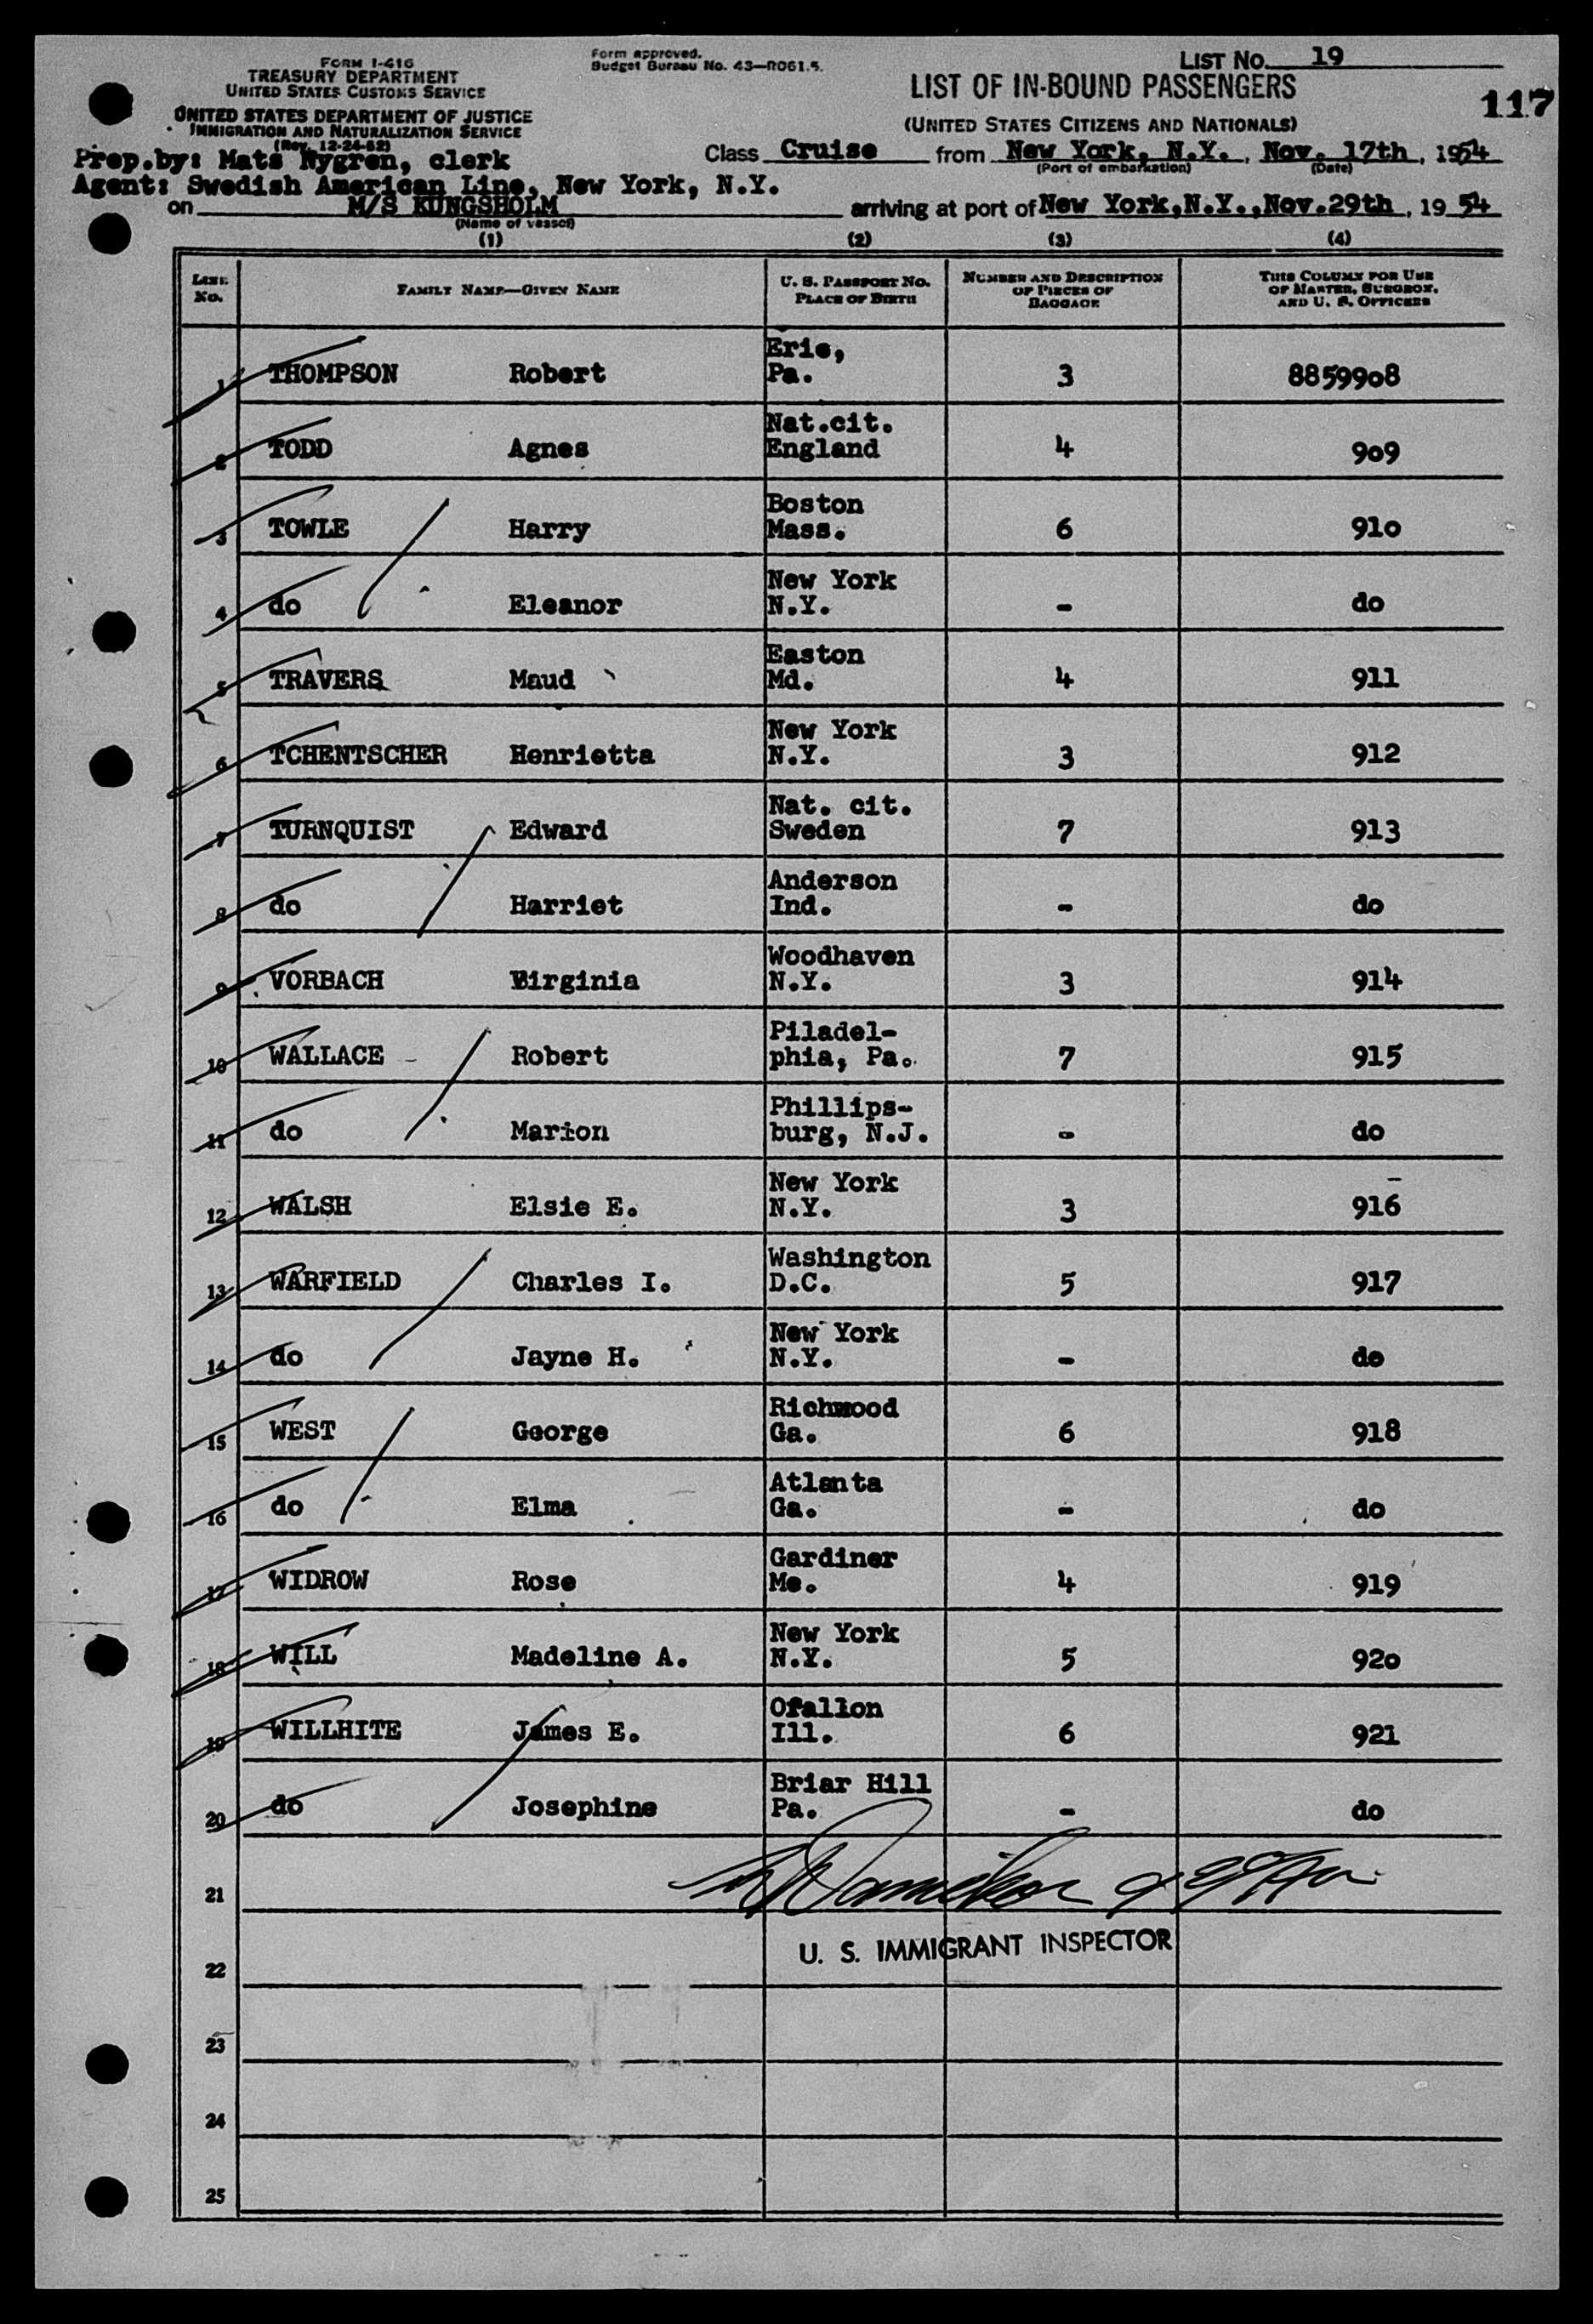 FORM I-416
TREASURY DEPARTMENT
UNITED STATES CUSTOMS SERVICE
UNITED STATES DEPARTMENT OF JUSTICE
IMMIGRATION AND NATURALIZATION SERVICE
(Rev. 12-24-52)
Form approved.
Budget Bureau No. 43—R061.5.
LIST No. 19
LIST OF IN-BOUND PASSENGERS
(UNITED STATES CITIZENS AND NATIONALS)
117
Prep.by: Mats Nygren, clerk
Agent: Swedish American Line, New York, N.Y.
Class Cruise from New York, N.Y., Nov. 17th, 1954
(Port of embarkation) (Date)
on M/S KUNGSHOLM arriving at port of New York,N.Y.,Nov.29th, 1954
(Name of vessel)
(1) (2) (3) (4)
LINE No. FAMILY NAME—GIVEN NAME U. S. PASSPORT NO. PLACE OF BIRTH NUMBER AND DESCRIPTION OF PIECES OF BAGGAGE THIS COLUMN FOR USE OF MASTER, SURGEON, AND U. S. OFFICERS
1 THOMPSON Robert Erie, Pa. 3 8859908
2 TODD Agnes Nat.cit. England 4 909
3 TOWLE Harry Boston Mass. 6 910
4 do Eleanor New York N.Y. - do
5 TRAVERS Maud Easton Md. 4 911
6 TCHENTSCHER Henrietta New York N.Y. 3 912
7 TURNQUIST Edward Nat. cit. Sweden 7 913
8 do Harriet Anderson Ind. - do
9 VORBACH Virginia Woodhaven N.Y. 3 914
10 WALLACE Robert Piladel- phia, Pa. 7 915
11 do Marion Phillips- burg, N.J. - do
12 WALSH Elsie E. New York N.Y. 3 916
13 WARFIELD Charles I. Washington D.C. 5 917
14 do Jayne H. New York N.Y. - do
15 WEST George Richwood Ga. 6 918
16 do Elma Atlanta Ga. - do
17 WIDROW Rose Gardiner Me. 4 919
18 WILL Madeline A. New York N.Y. 5 920
19 WILLHITE James E. Ofallon Ill. 6 921
20 do Josephine Briar Hill Pa. - do
21
U. S. IMMIGRANT INSPECTOR
22
23
24
25